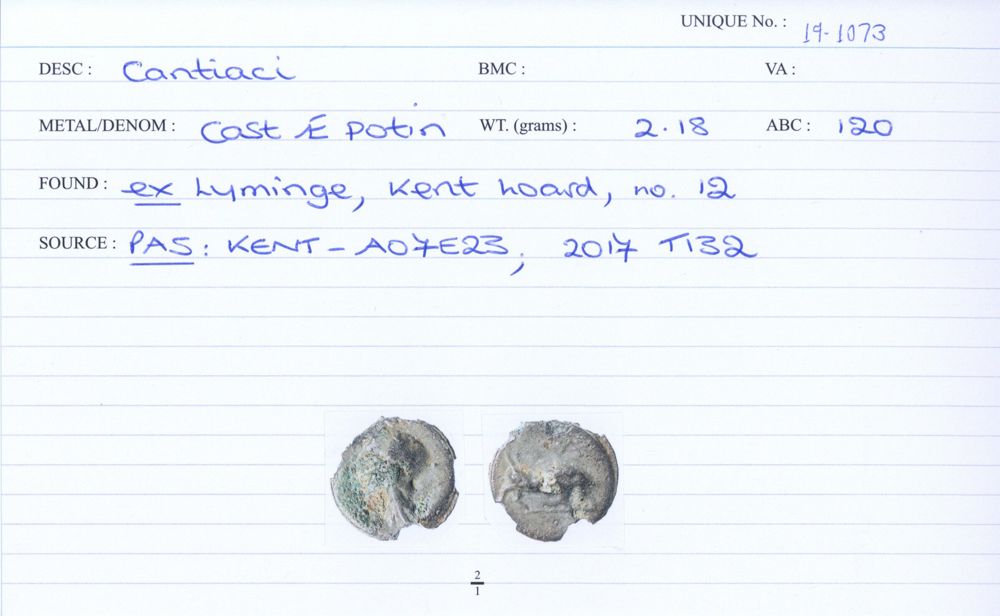 UNIQUE No. : 19-1073
DESC : Cantiaci BMC : VA :
METAL/DENOM : Cast Æ potin WT. (grams) : 2.18 ABC : 120
FOUND : ex Lyminge, Kent hoard, no. 12
SOURCE : PAS: KENT-A07E23; 2017 T132
2
1